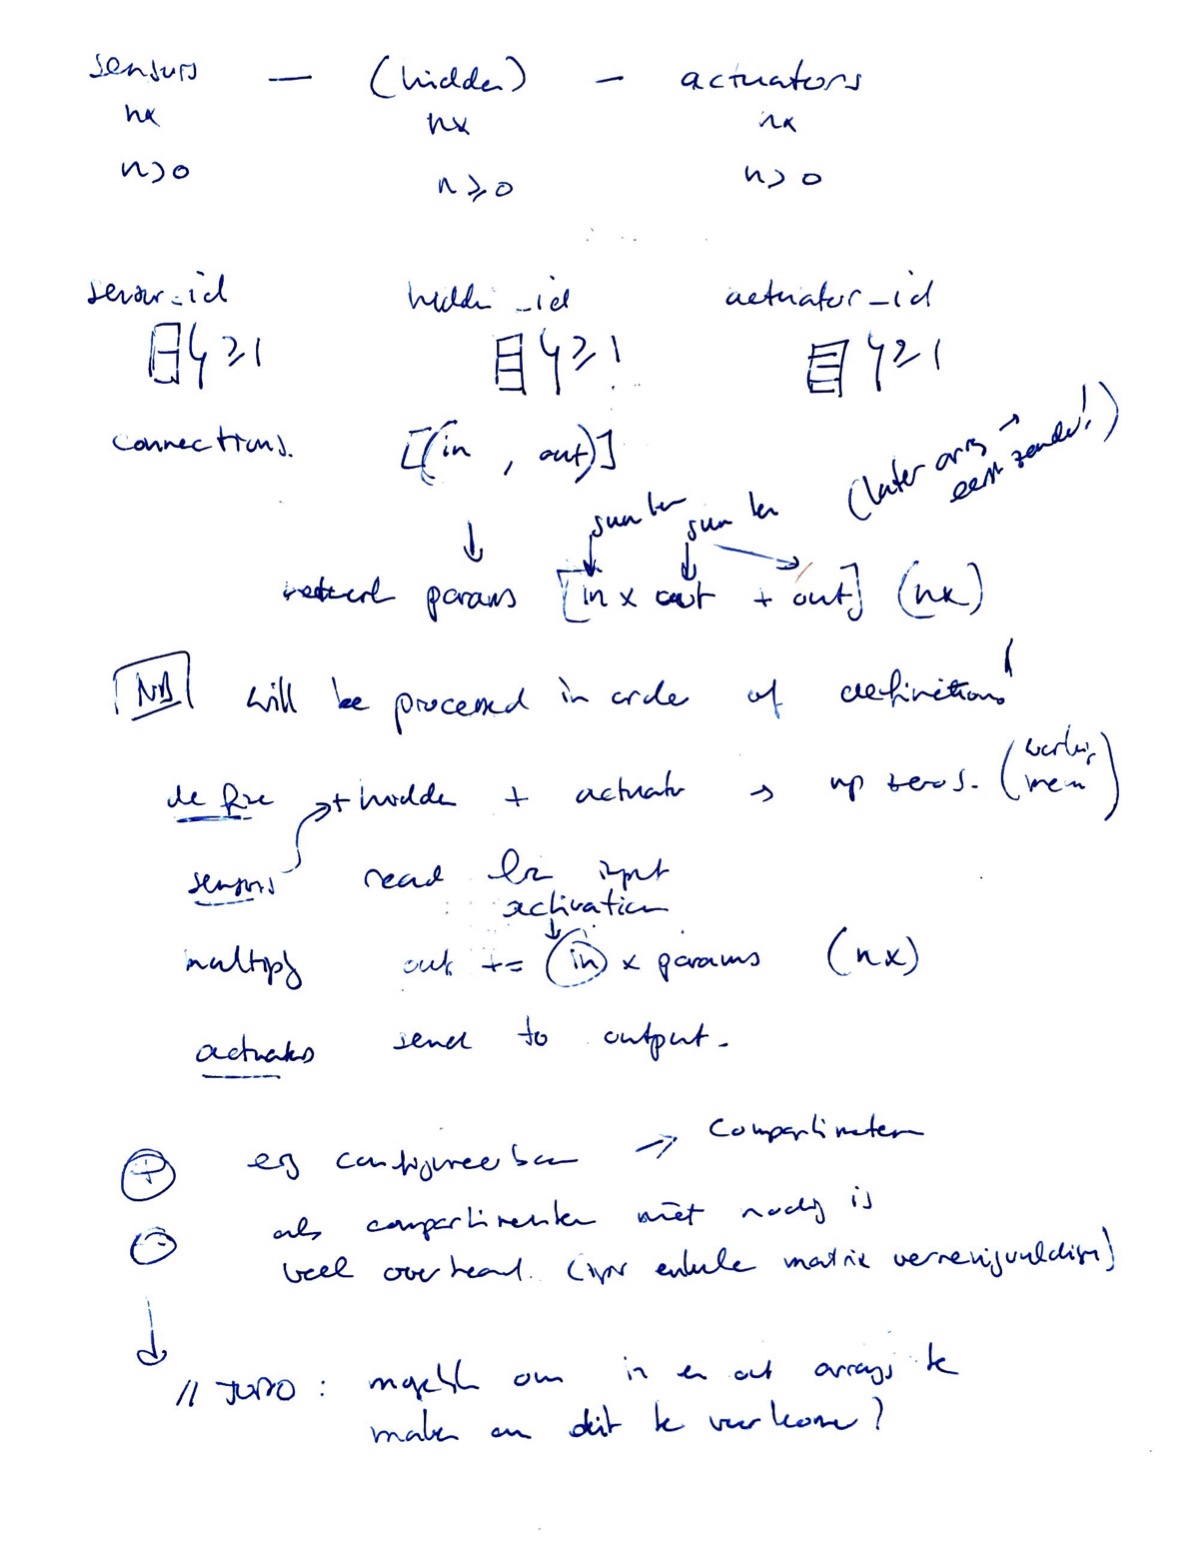 sensors — (hidden) — actuators
nx nx nx
n>0 n≥0 n>0
sensor_id hidden_id actuator_id
≥1 ≥1 ≥1
connections. [(in , out)]
(later ons → eerst zonder!)
sum len sum len
↓
params [in x out + out] (nx)
NB will be processed in order of definitions!
define + hidden + actuator → np zeros. (working mem)
sensors read in input
activation
multiply out += (in) x params (nx)
actuators send to output.
+ configureerbaar → compartimenten
- als compartimenten niet nodig is
veel overhead. (ipv enkele matrix vermenigvuldigen)
↓
// TODO : mogelijk om in en out arrays te
maken om dit te voorkomen?